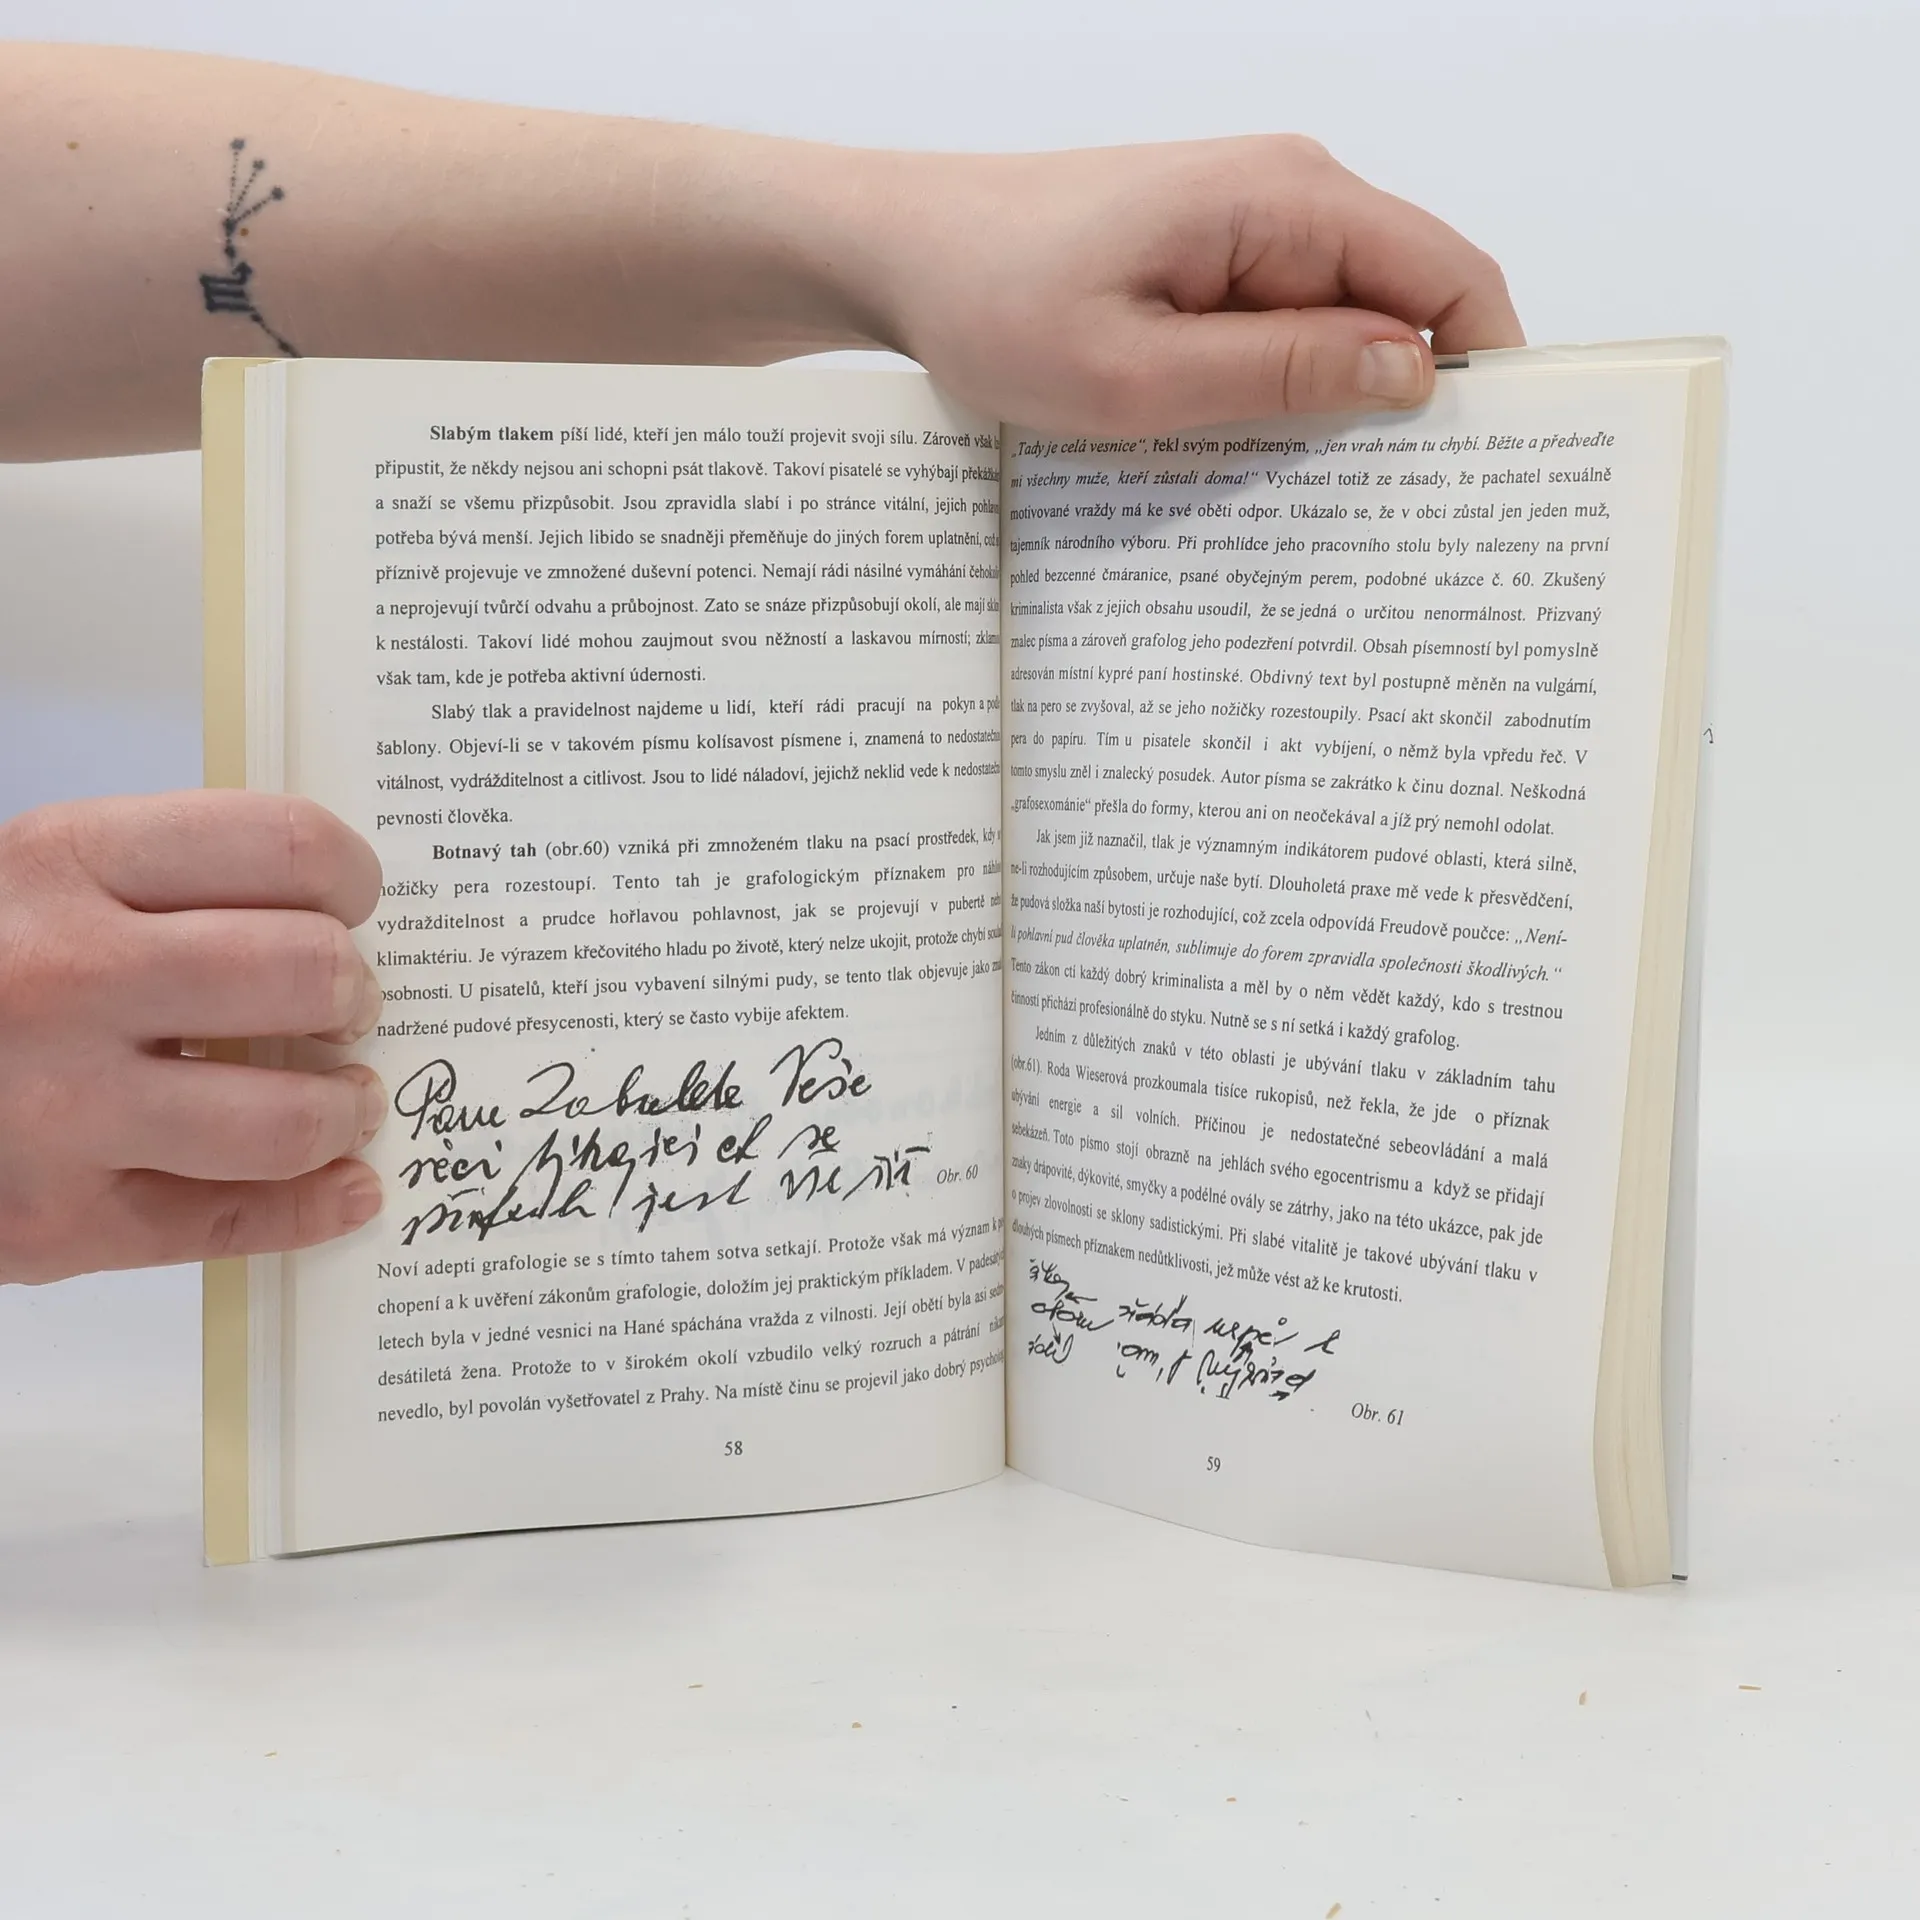 Slabým tlakem píší lidé, kteří jen málo touží projevit svoji sílu. Zároveň však
připustit, že někdy nejsou ani schopni psát tlakově. Takoví pisatelé se vyhýbají
a snaží se všemu přizpůsobit. Jsou zpravidla slabí i po stránce vitální, jejich
potřeba bývá menší. Jejich libido se snadněji přeměňuje do jiných forem uplatnění,
příznivě projevuje ve zmnožené duševní potenci. Nemají rádi násilné vymáhání
a neprojevují tvůrčí odvahu a průbojnost. Zato se snáze přizpůsobují okolí, ale mají
k nestálosti. Takoví lidé mohou zaujmout svou něžností a laskavou mírností;
však tam, kde je potřeba aktivní údernosti.
Slabý tlak a pravidelnost najdeme u lidí, kteří rádi pracují na pokyn a
šablony. Objeví-li se v takovém písmu kolísavost písmene i, znamená to
vitálnost, vydrážditelnost a citlivost. Jsou to lidé náladoví, jejichž neklid vede k
pevnosti člověka.
Botnavý tah (obr.60) vzniká při zmnoženém tlaku na psací prostředek, kdy
nožičky pera rozestoupí. Tento tah je grafologickým příznakem pro
vydrážditelnost a prudce hořlavou pohlavnost, jak se projevují v pubertě
klimaktériu. Je výrazem křečovitého hladu po životě, který nelze ukojit, protože chybí
osobnosti. U pisatelů, kteří jsou vybavení silnými pudy, se tento tlak objevuje jako
nadržené pudové přesycenosti, který se často vybije afektem.
Obr. 60
Noví adepti grafologie se s tímto tahem sotva setkají. Protože však má význam k
chopení a k uvěření zákonům grafologie, doložím jej praktickým příkladem. V
letech byla v jedné vesnici na Hané spáchána vražda z vilnosti. Její obětí byla asi
desátiletá žena. Protože to v širokém okolí vzbudilo velký rozruch a pátrání
nevedlo, byl povolán vyšetřovatel z Prahy. Na místě činu se projevil jako dobrý
58
„Tady je celá vesnice“, řekl svým podřízeným, „jen vrah nám tu chybí. Běžte a předveďte
mi všechny muže, kteří zůstali doma!“ Vycházel totiž ze zásady, že pachatel sexuálně
motivované vraždy má ke své oběti odpor. Ukázalo se, že v obci zůstal jen jeden muž,
tajemník národního výboru. Při prohlídce jeho pracovního stolu byly nalezeny na první
pohled bezcenné čmáranice, psané obyčejným perem, podobné ukázce č. 60. Zkušený
kriminalista však z jejich obsahu usoudil, že se jedná o určitou nenormálnost. Přizvaný
znalec písma a zároveň grafolog jeho podezření potvrdil. Obsah písemností byl pomyslně
adresován místní kypré paní hostinské. Obdivný text byl postupně měněn na vulgární,
tlak na pero se zvyšoval, až se jeho nožičky rozestoupily. Psací akt skončil zabodnutím
pera do papíru. Tím u pisatele skončil i akt vybíjení, o němž byla vpředu řeč. V
tomto smyslu zněl i znalecký posudek. Autor písma se zakrátko k činu doznal. Neškodná
„grafosexománie“ přešla do formy, kterou ani on neočekával a jíž prý nemohl odolat.
Jak jsem již naznačil, tlak je významným indikátorem pudové oblasti, která silně,
ne-li rozhodujícím způsobem, určuje naše bytí. Dlouholetá praxe mě vede k přesvědčení,
že pudová složka naší bytosti je rozhodující, což zcela odpovídá Freudově poučce: „Není-
li pohlavní pud člověka uplatněn, sublimuje do forem zpravidla společnosti škodlivých.“
Tento zákon ctí každý dobrý kriminalista a měl by o něm vědět každý, kdo s trestnou
činností přichází profesionálně do styku. Nutně se s ní setká i každý grafolog.
Jedním z důležitých znaků v této oblasti je ubývání tlaku v základním tahu
(obr.61). Roda Wieserová prozkoumala tisíce rukopisů, než řekla, že jde o příznak
ubývání energie a sil volních. Příčinou je nedostatečné sebeovládání a malá
sebekázeň. Toto písmo stojí obrazně na jehlách svého egocentrismu a když se přidají
znaky drápovité, dýkovité, smyčky a podélné ovály se zátrhy, jako na této ukázce, pak jde
o projev zlovolnosti se sklony sadistickými. Při slabé vitalitě je takové ubývání tlaku v
dlouhých písmech příznakem nedůtklivosti, jež může vést až ke krutosti.
Obr. 61
59